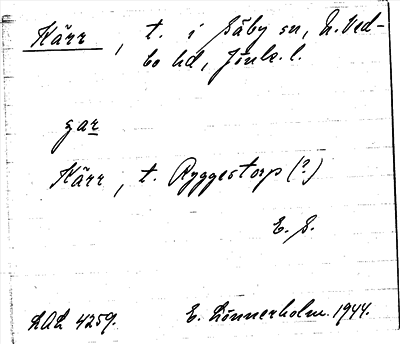 Kärr, t. i Säby sn, N. Ved-
bo hd, Jönk. l.
gar
Kärr, t. Ryggestorp (?)
E. S.
LAL 4259.
E. Lönnerholm. 1944.